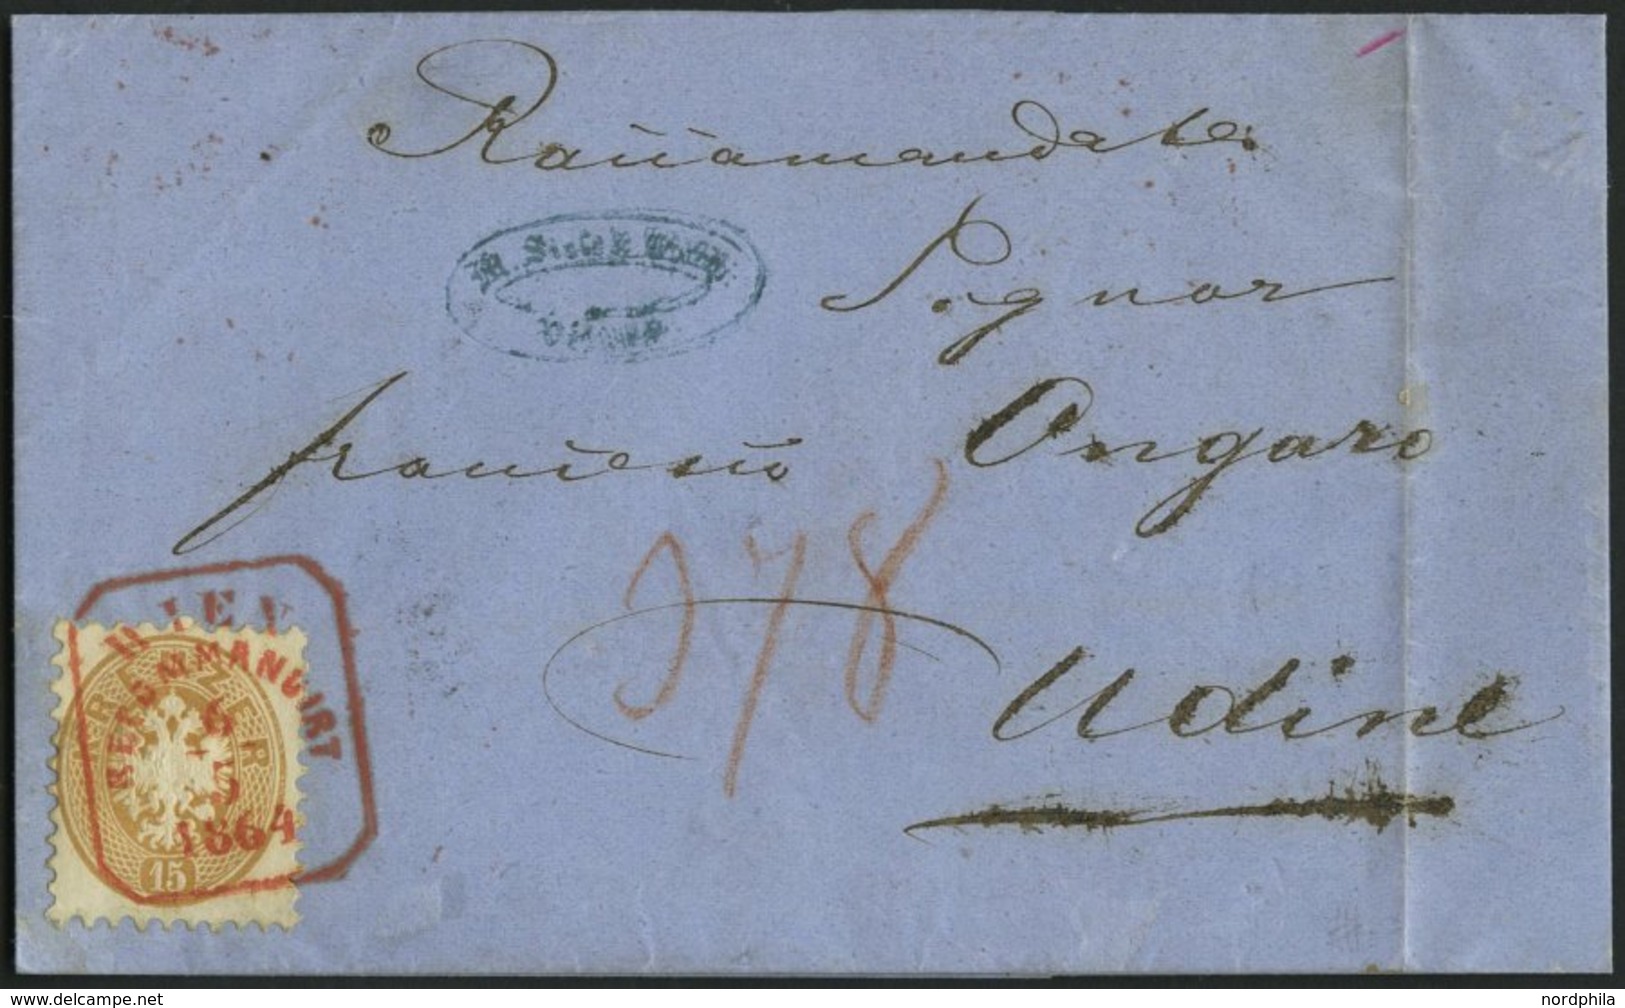 Raccamandata
Signor
francesco Ongaro
378
Udine
WIEN
RECOMMANDIRT
6
5
1864
KREUZER
15
delcampe.net
nordphila